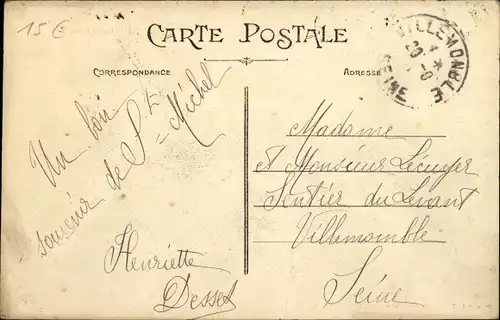 15€
CARTE POSTALE
CORRESPONDANCE
ADRESSE
VILLEMOMBLE
SEINE
Un bon
souvenir de St-Michel
Henriette
Desset
Madame
et Monsieur Lécuyer
Sentier du Levant
Villemomble
Seine